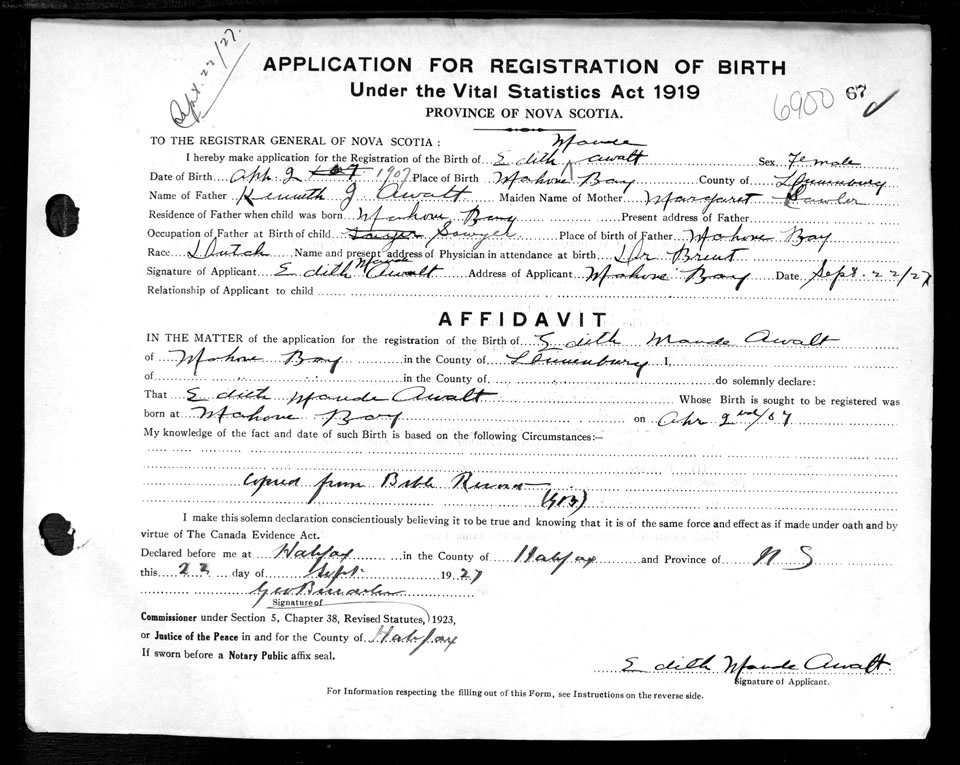 Sept. 22/27.
APPLICATION FOR REGISTRATION OF BIRTH
Under the Vital Statistics Act 1919
6900 67
PROVINCE OF NOVA SCOTIA.
TO THE REGISTRAR GENERAL OF NOVA SCOTIA:
Maude
I hereby make application for the Registration of the Birth of Edith Awalt Sex Female
Date of Birth Aph 2 1907 Place of Birth Mahone Bay County of Lunenburg
Name of Father Kenneth J Awalt Maiden Name of Mother Margaret Sawler
Residence of Father when child was born Mahone Bay Present address of Father
Occupation of Father at Birth of child Sawyer Place of birth of Father Mahone Bay
Race Dutch Name and present address of Physician in attendance at birth Dr
Signature of Applicant Edith Maude Awalt Address of Applicant Mahone Bay Date Sept. 22/27
Relationship of Applicant to child
AFFIDAVIT
IN THE MATTER of the application for the registration of the Birth of Edith Maude Awalt
of Mahone Bay in the County of Lunenburg I,
of in the County of do solemnly declare:
That Edith Maude Awalt Whose Birth is sought to be registered was
born at Mahone Bay on Apr 2nd/07
My knowledge of the fact and date of such Birth is based on the following Circumstances:—
Copied from Bible Record
I make this solemn declaration conscientiously believing it to be true and knowing that it is of the same force and effect as if made under oath and by
virtue of The Canada Evidence Act.
Declared before me at Halifax in the County of Halifax and Province of N S
this 22 day of Sept 1927
Signature of
Commissioner under Section 5, Chapter 38, Revised Statutes, 1923,
or Justice of the Peace in and for the County of Halifax
If sworn before a Notary Public affix seal.
Edith Maude Awalt
Signature of Applicant.
For Information respecting the filling out of this Form, see Instructions on the reverse side.